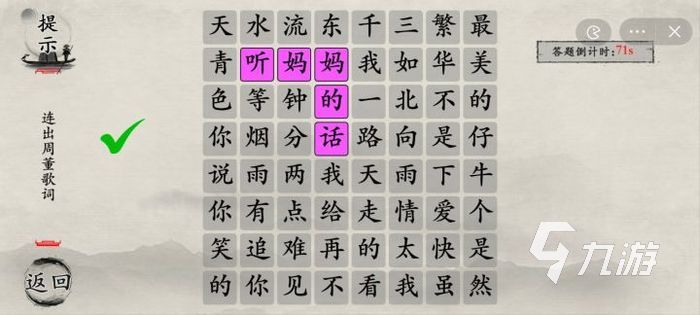 提示
答题倒计时：71s
连出周董歌词
天水流东千三繁最
青听妈妈我如华美
色等钟的一北不的
你烟分话路向是仔
说雨两我天雨下牛
你有点给走情爱个
笑追难再的太快是
的你见不看我虽然
返回
九游